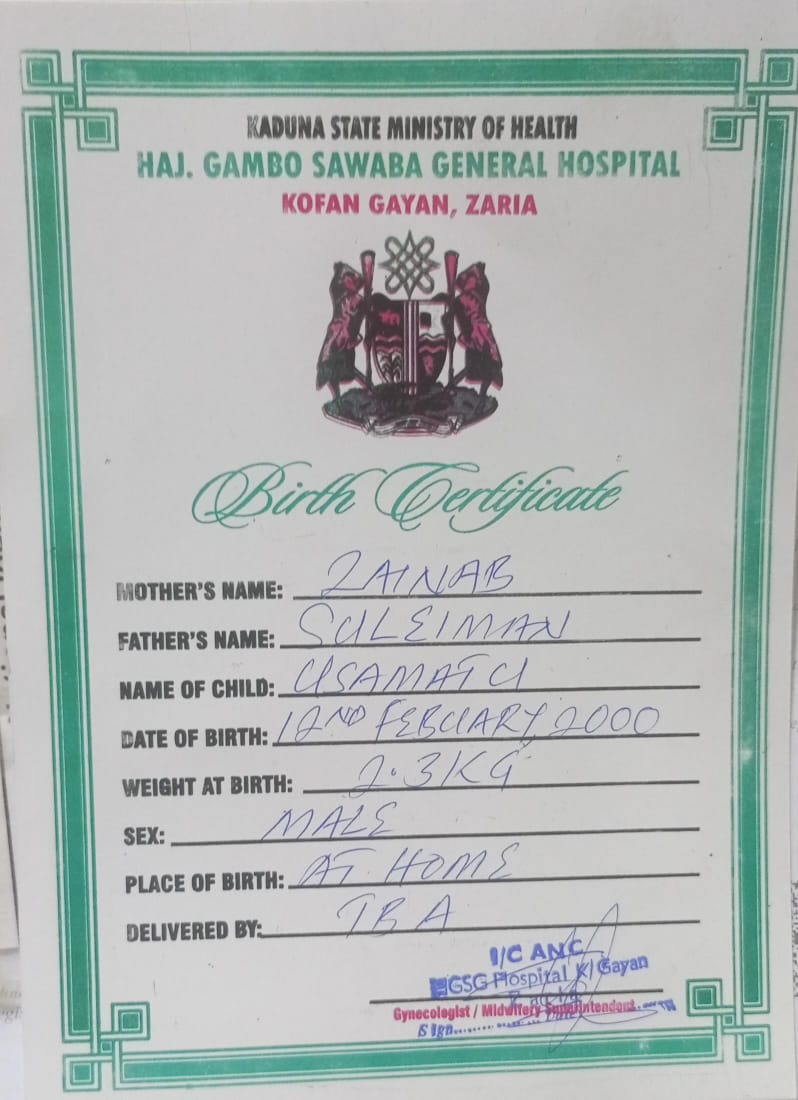 KADUNA STATE MINISTRY OF HEALTH
HAJ. GAMBO SAWABA GENERAL HOSPITAL
KOFAN GAYAN, ZARIA
Birth Certificate
MOTHER'S NAME: ZAINAB
FATHER'S NAME: SULEIMAN
NAME OF CHILD: USAMATU
DATE OF BIRTH: 12ND FEBUARY, 2000
WEIGHT AT BIRTH: 2.3KG
SEX: MALE
PLACE OF BIRTH: AT HOME
DELIVERED BY: TBA
I/C ANC
GSG Hospital K/Gayan
Gynecologist / Midwifery Superintendent
Sign